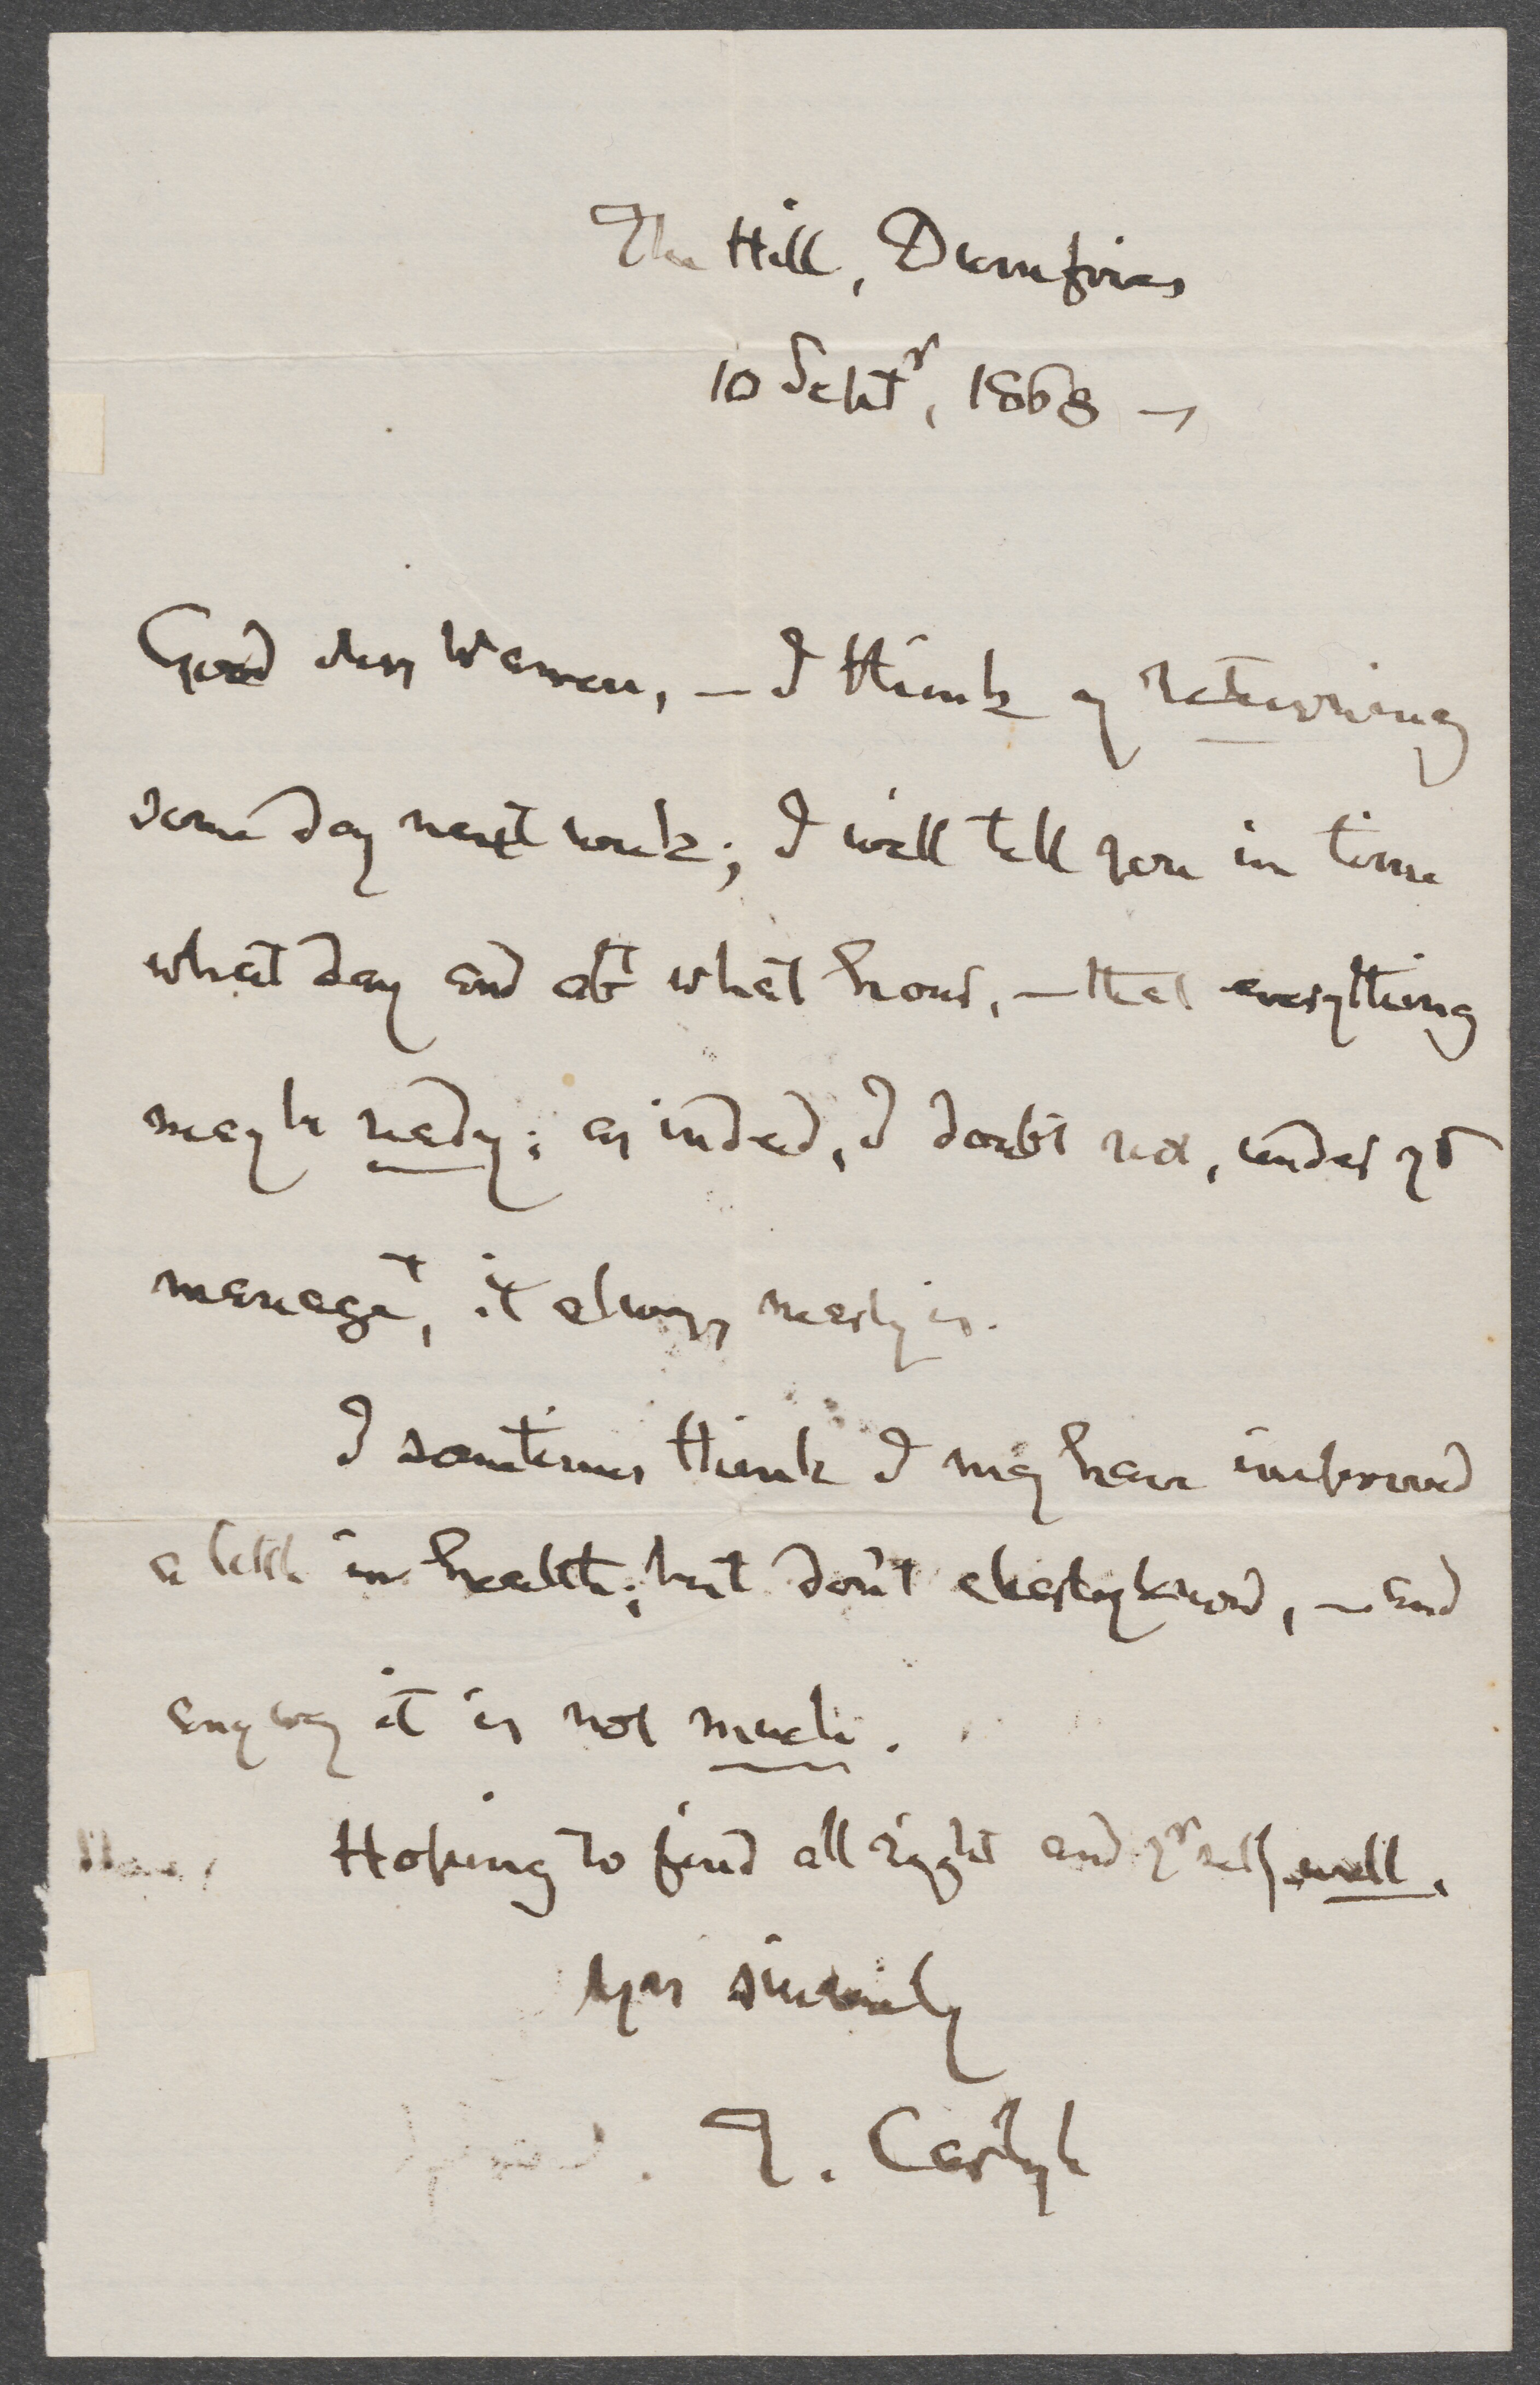 The Hill, Dumfries
10 Septr, 1868 —
Good Mrs Warren, — I think of returning
some day next week; I will tell you in time
what day and abt what hour, — that everything
may be ready; as indeed, I doubt not, under yr
managet, it always nearly is.
I sometimes think I may have improved
a little in health; but don't clearly know, — and
any way it is not much.
Hoping to find all right and yrself well,
Yrs sincerely
T. Carlyle